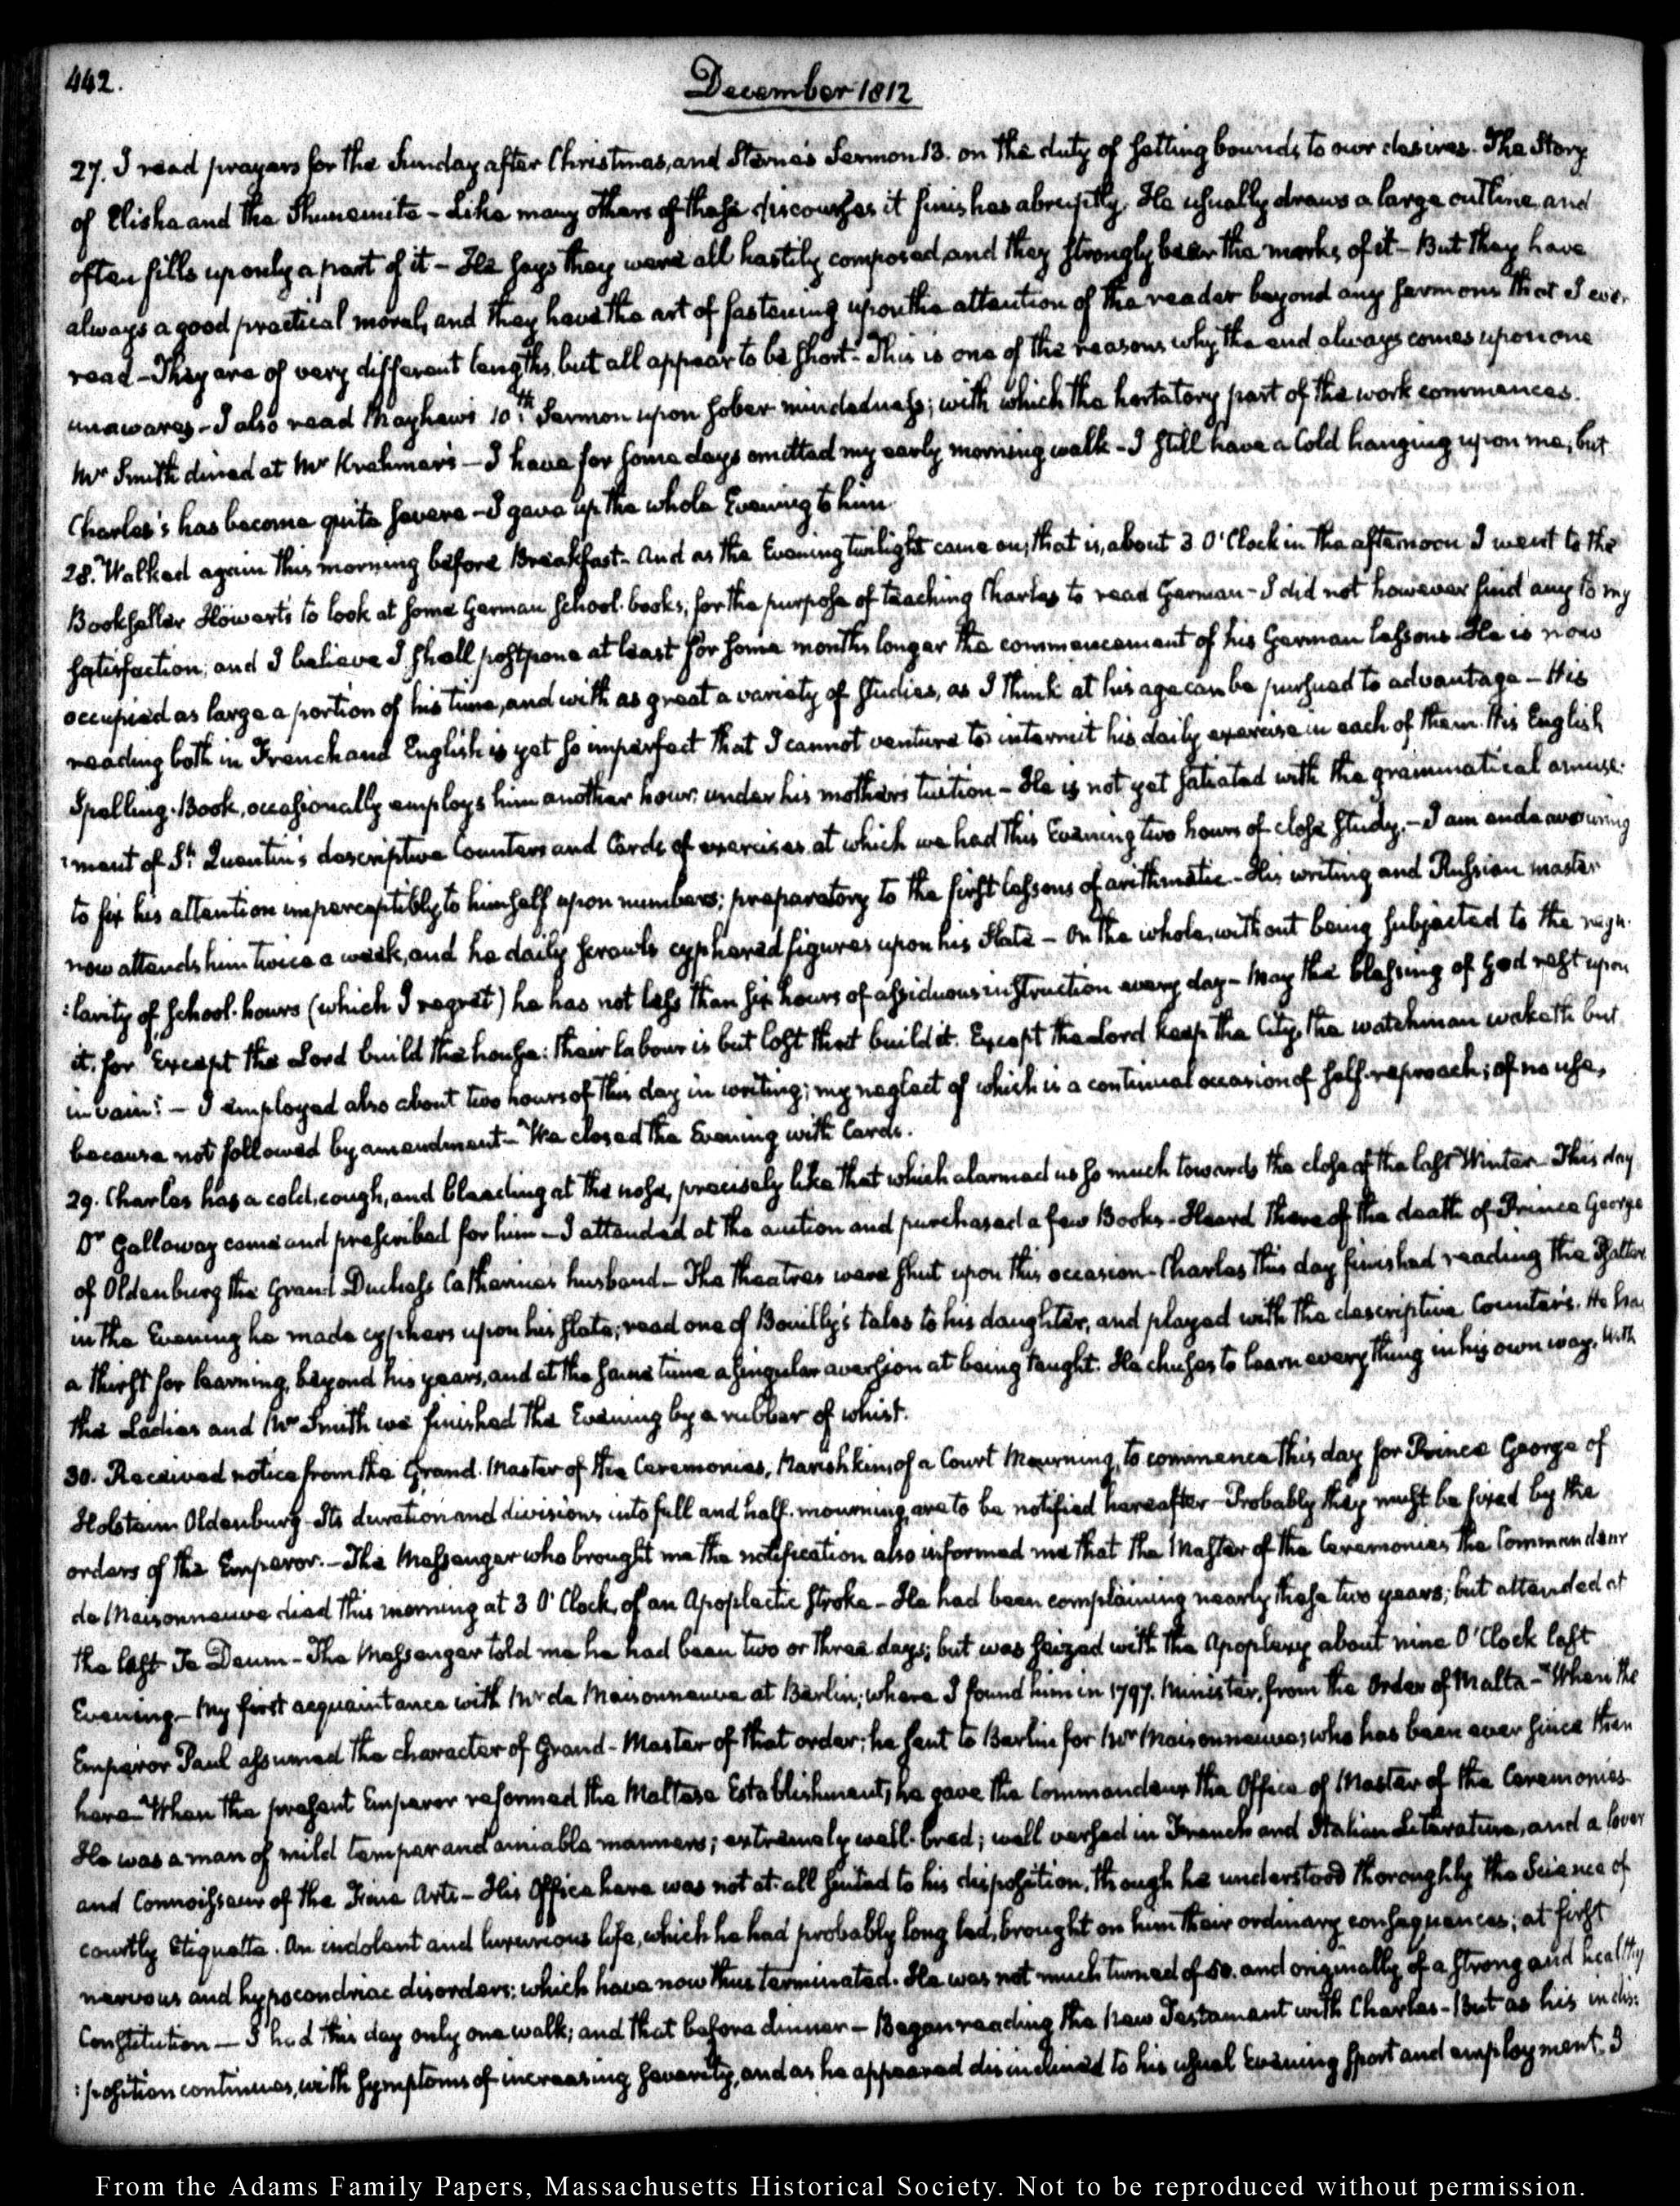 442.
December 1812
27. I read prayers for the Sunday after Christmas, and Sterne's Sermon 13. on the duty of setting bounds to our desires. The Story
of Elisha and the Shunemite – Like many others of these discourses it finishes abruptly. He usually draws a large outline, and
often fills up only a part of it – He says they were all hastily composed, and they strongly bear the marks of it – But they have
always a good practical moral, and they have the art of fastening upon the attention of the reader beyond any sermons that I ever
read – They are of very different lengths, but all appear to be short – This is one of the reasons why the end always comes upon one
unawares – I also read Mayhew's 10th. Sermon upon sober mindedness; with which the hortatory part of the work commences.
Mr Smith dined at Mr Krehmer's – I have for some days omitted my early morning walk – I still have a Cold hanging upon me, but
Charles's has become quite severe – I gave up the whole Evening to him
28. Walked again this morning before Breakfast – And as the Evening twilight came on, that is, about 3 O'Clock in the afternoon I went to the
Bookseller Howert's to look at some German school-books, for the purpose of teaching Charles to read German – I did not however find any to my
satisfaction, and I believe I shall postpone at least for some months longer the commencement of his German lessons. He is now
occupied as large a portion of his time, and with as great a variety of studies, as I think at his age can be pursued to advantage – His
reading both in French and English is yet so imperfect that I cannot venture to intermit his daily exercise in each of them. His English
Spelling-Book, occasionally employs him another hour, under his mother's tuition – He is not yet satiated with the grammatical amuse-
:ment of St. Quentin's descriptive Counters and Cards of exercises at which we had this Evening two hours of close study. – I am endeavouring
to fix his attention imperceptibly to himself upon numbers; preparatory to the first lessons of arithmetic. – His writing and Russian master
now attends him twice a week, and he daily scrawls cyphered figures upon his slate – On the whole, without being subjected to the regu-
:larity of school-hours (which I regret) he has not less than six hours of assiduous instruction every day – May the blessing of God rest upon
it. for "Except the Lord build the house: their labour is but lost that build it. Except the Lord keep the City, the watchman waketh but
in vain": – I employed also about two hours of this day in writing; my neglect of which is a continual occasion of self-reproach; of no use,
because not followed by amendment – We closed the Evening with Cards.
29. Charles has a cold, cough, and bleeding at the nose, precisely like that which alarmed us so much towards the close of the last Winter – This day
Dr Galloway came and prescribed for him – I attended at the auction and purchased a few Books – Heard there of the death of Prince George
of Oldenburg the Grand Duchess Catherine's husband – The theatres were shut upon this occasion – Charles this day finished reading the Psalter
in the Evening he made cyphers upon his slate; read one of Bouilly's tales to his daughter, and played with the descriptive Counters. He has
a thirst for learning, beyond his years, and at the same time a singular aversion at being taught. He chuses to learn every thing in his own way. With
the Ladies and Mr Smith we finished the Evening by a rubber of whist.
30. Received notice from the Grand-Master of the Ceremonies, Narishkin, of a Court Mourning, to commence this day for Prince George of
Holstein Oldenburg – Its duration and divisions into full and half-mourning, are to be notified hereafter – Probably they must be fixed by the
orders of the Emperor. – The Messenger who brought me the notification also informed me that the Master of the Ceremonies the Commandeur
de Maisonneuve died this morning at 3 O'Clock, of an Apoplectic stroke – He had been complaining nearly these two years; but attended at
the last Te Deum – The Messenger told me he had been two or three days; but was seized with the Apoplexy about nine O'Clock last
Evening – My first acquaintance with Mr de Maisonneuve at Berlin; where I found him in 1797. Minister, from the Order of Malta – When the
Emperor Paul assumed the character of Grand-Master of that order; he sent to Berlin for Mr Maisonneuve, who has been ever since then
here – When the present Emperor reformed the Maltese Establishment, he gave the Commandeur the Office of Master of the Ceremonies.
He was a man of mild temper and amiable manners; extremely well-bred; well versed in French and Italian Literature, and a lover
and Connoisseur of the Fine Arts – His Office here was not at all suited to his disposition, though he understood thoroughly the Science of
courtly Etiquette. An indolent and luxurious life, which he had probably long led, brought on him their ordinary consequences; at first
nervous and hypocondriac disorders; which have now thus terminated. He was not much turned of 50. and originally of a strong and healthy
Constitution – I had this day only one walk; and that before dinner – Began reading the New Testament with Charles – But as his indis-
:position continues, with symptoms of increasing severity, and as he appeared disinclined to his usual Evening sport and employment. I
From the Adams Family Papers, Massachusetts Historical Society. Not to be reproduced without permission.